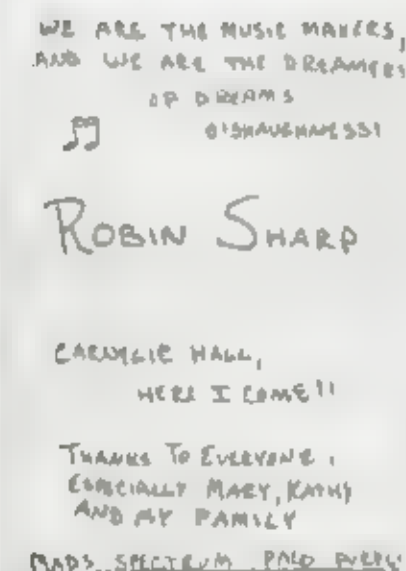 WE ARE THE MUSIC MAKERS,
AND WE ARE THE DREAMERS
OF DREAMS
O'SHAUGHNESSY
ROBIN SHARP
CARNEGIE HALL,
HERE I COME!!
THANKS TO EVERYONE,
ESPECIALLY MARY, KATHY
AND MY FAMILY
SPECTRUM